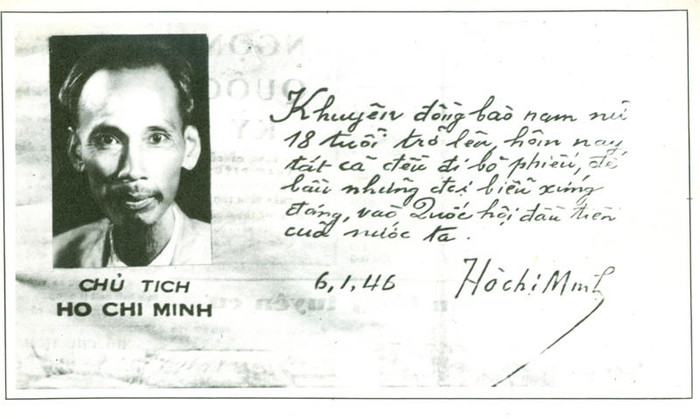 Khuyên đồng bào nam nữ
18 tuổi trở lên, hôm nay,
tất cả đều đi bỏ phiếu, để
bầu những đại biểu xứng
đáng, vào Quốc hội đầu tiên
của nước ta.
6,1,46
Hồ Chí Minh
CHỦ TỊCH
HO CHI MINH